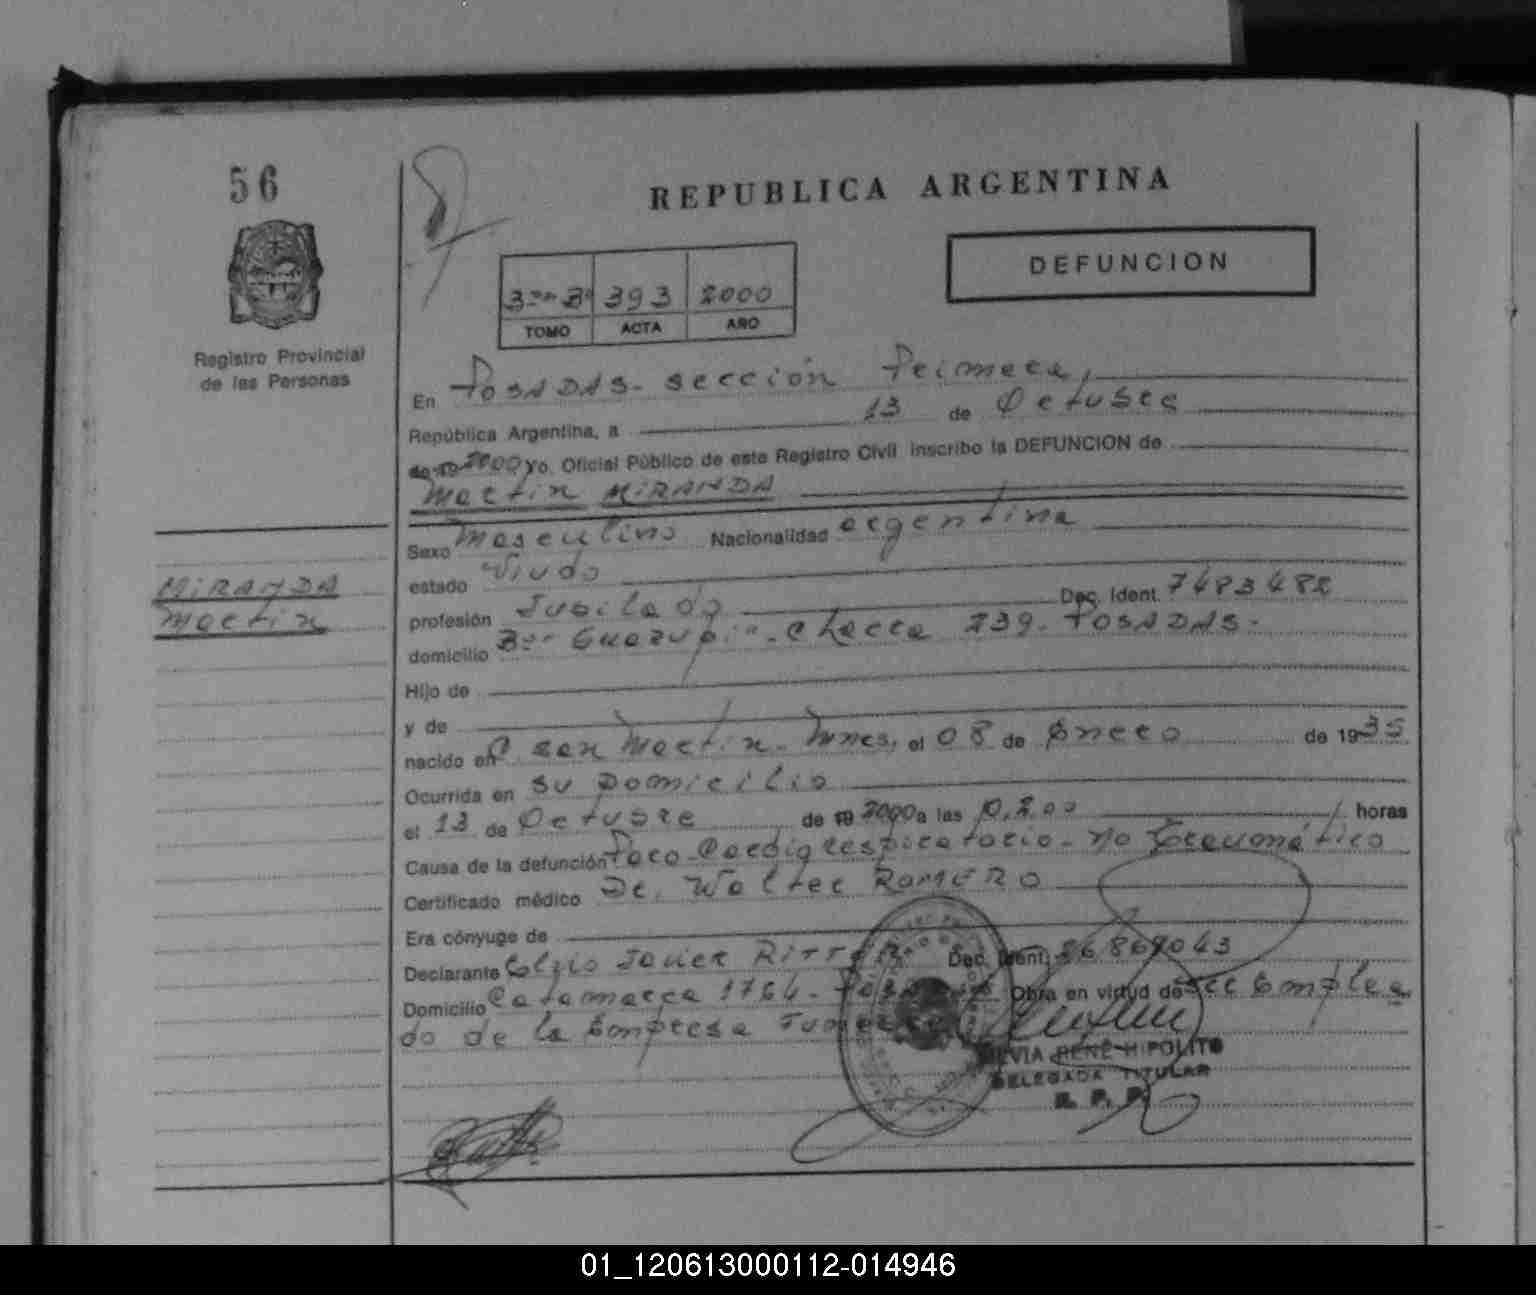 56
REPUBLICA ARGENTINA
DEFUNCION
393 2000
TOMO ACTA AÑO
Registro Provincial
de las Personas
En POSADAS - sección Primera,
República Argentina, a 13 de Octubre
de 19 2000 Yo, Oficial Público de este Registro Civil inscribo la DEFUNCION de
Martin MIRANDA
Sexo Masculino Nacionalidad argentina
estado Viudo
MIRANDA
Martin
profesión Jubilado Doc. Ident. 7483482
domicilio Bº Guazupi - Chacra 239 - POSADAS -
Hijo de
y de
nacido en San Martin - Mnes, el 08 de Enero de 1935
Ocurrida en su Domicilio
el 13 de Octubre de 19 2000 a las 02,00 horas
Causa de la defunción Paro - Cardiorespiratorio - no Traumático
Certificado médico Dr. Walter ROMERO
Era cónyuge de
Declarante Javier RITTER Doc. Ident.
Domicilio Catamarca 1764 - Obra en virtud de ser Emplea
do de la Empresa
SILVIA RENE HIPOLITO
DELEGADA TITULAR
R. P. P.
01_120613000112-014946